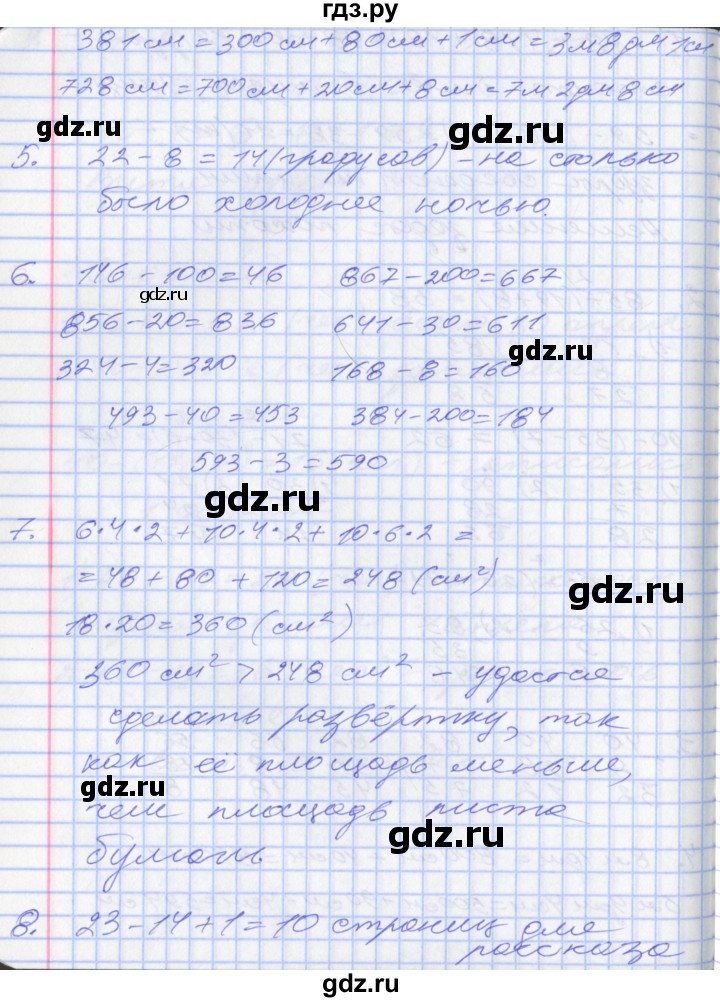 гдз.ру
381 см = 300 см + 80 см + 1 см = 3м 8дм 1см
728 см = 700 см + 20 см + 8 см = 7м 2дм 8 см
gdz.ru
gdz.ru
5. 22 - 8 = 14 (градусов) - на столько
было холоднее ночью.
6. 146 - 100 = 46 867 - 200 = 667
gdz.ru
856 - 20 = 836 641 - 30 = 611
gdz.ru
324 - 4 = 320 168 - 8 = 160
493 - 40 = 453 384 - 200 = 184
593 - 3 = 590
gdz.ru
7. 6·4·2 + 10·4·2 + 10·6·2 =
= 48 + 80 + 120 = 248 (см²)
gdz.ru
18·20 = 360 (см²)
360 см² > 248 см² - удастся
сделать развёртку, так
как её площадь меньше,
чем площадь листа
gdz.ru
бумаги
8. 23 - 14 + 1 = 10 страниц для
рассказа
gdz.ru